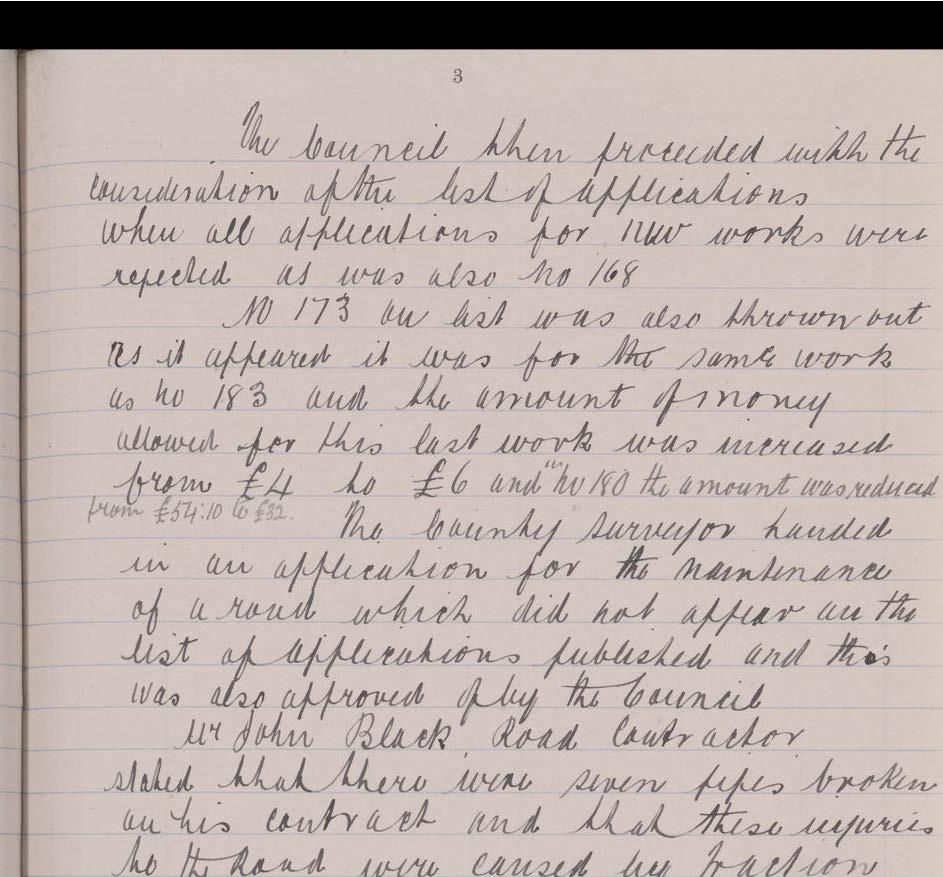 3
The Council then proceeded with the
consideration of the list of applications
when all applications for new works were
rejected as was also No 168
No 173 on list was also thrown out
as it appeared it was for the same work
as No 183 and the amount of money
allowed for this last work was increased
from £4 to £6 and in No 180 the amount was reduced
from £54:10 to £32.
The County Surveyor handed
in an application for the maintenance
of a road which did not appear on the
list of applications published and this
was also approved of by the Council
Mr John Black, Road Contractor
stated that there were seven pipes broken
on his contract and that these injuries
to the Road were caused by traction